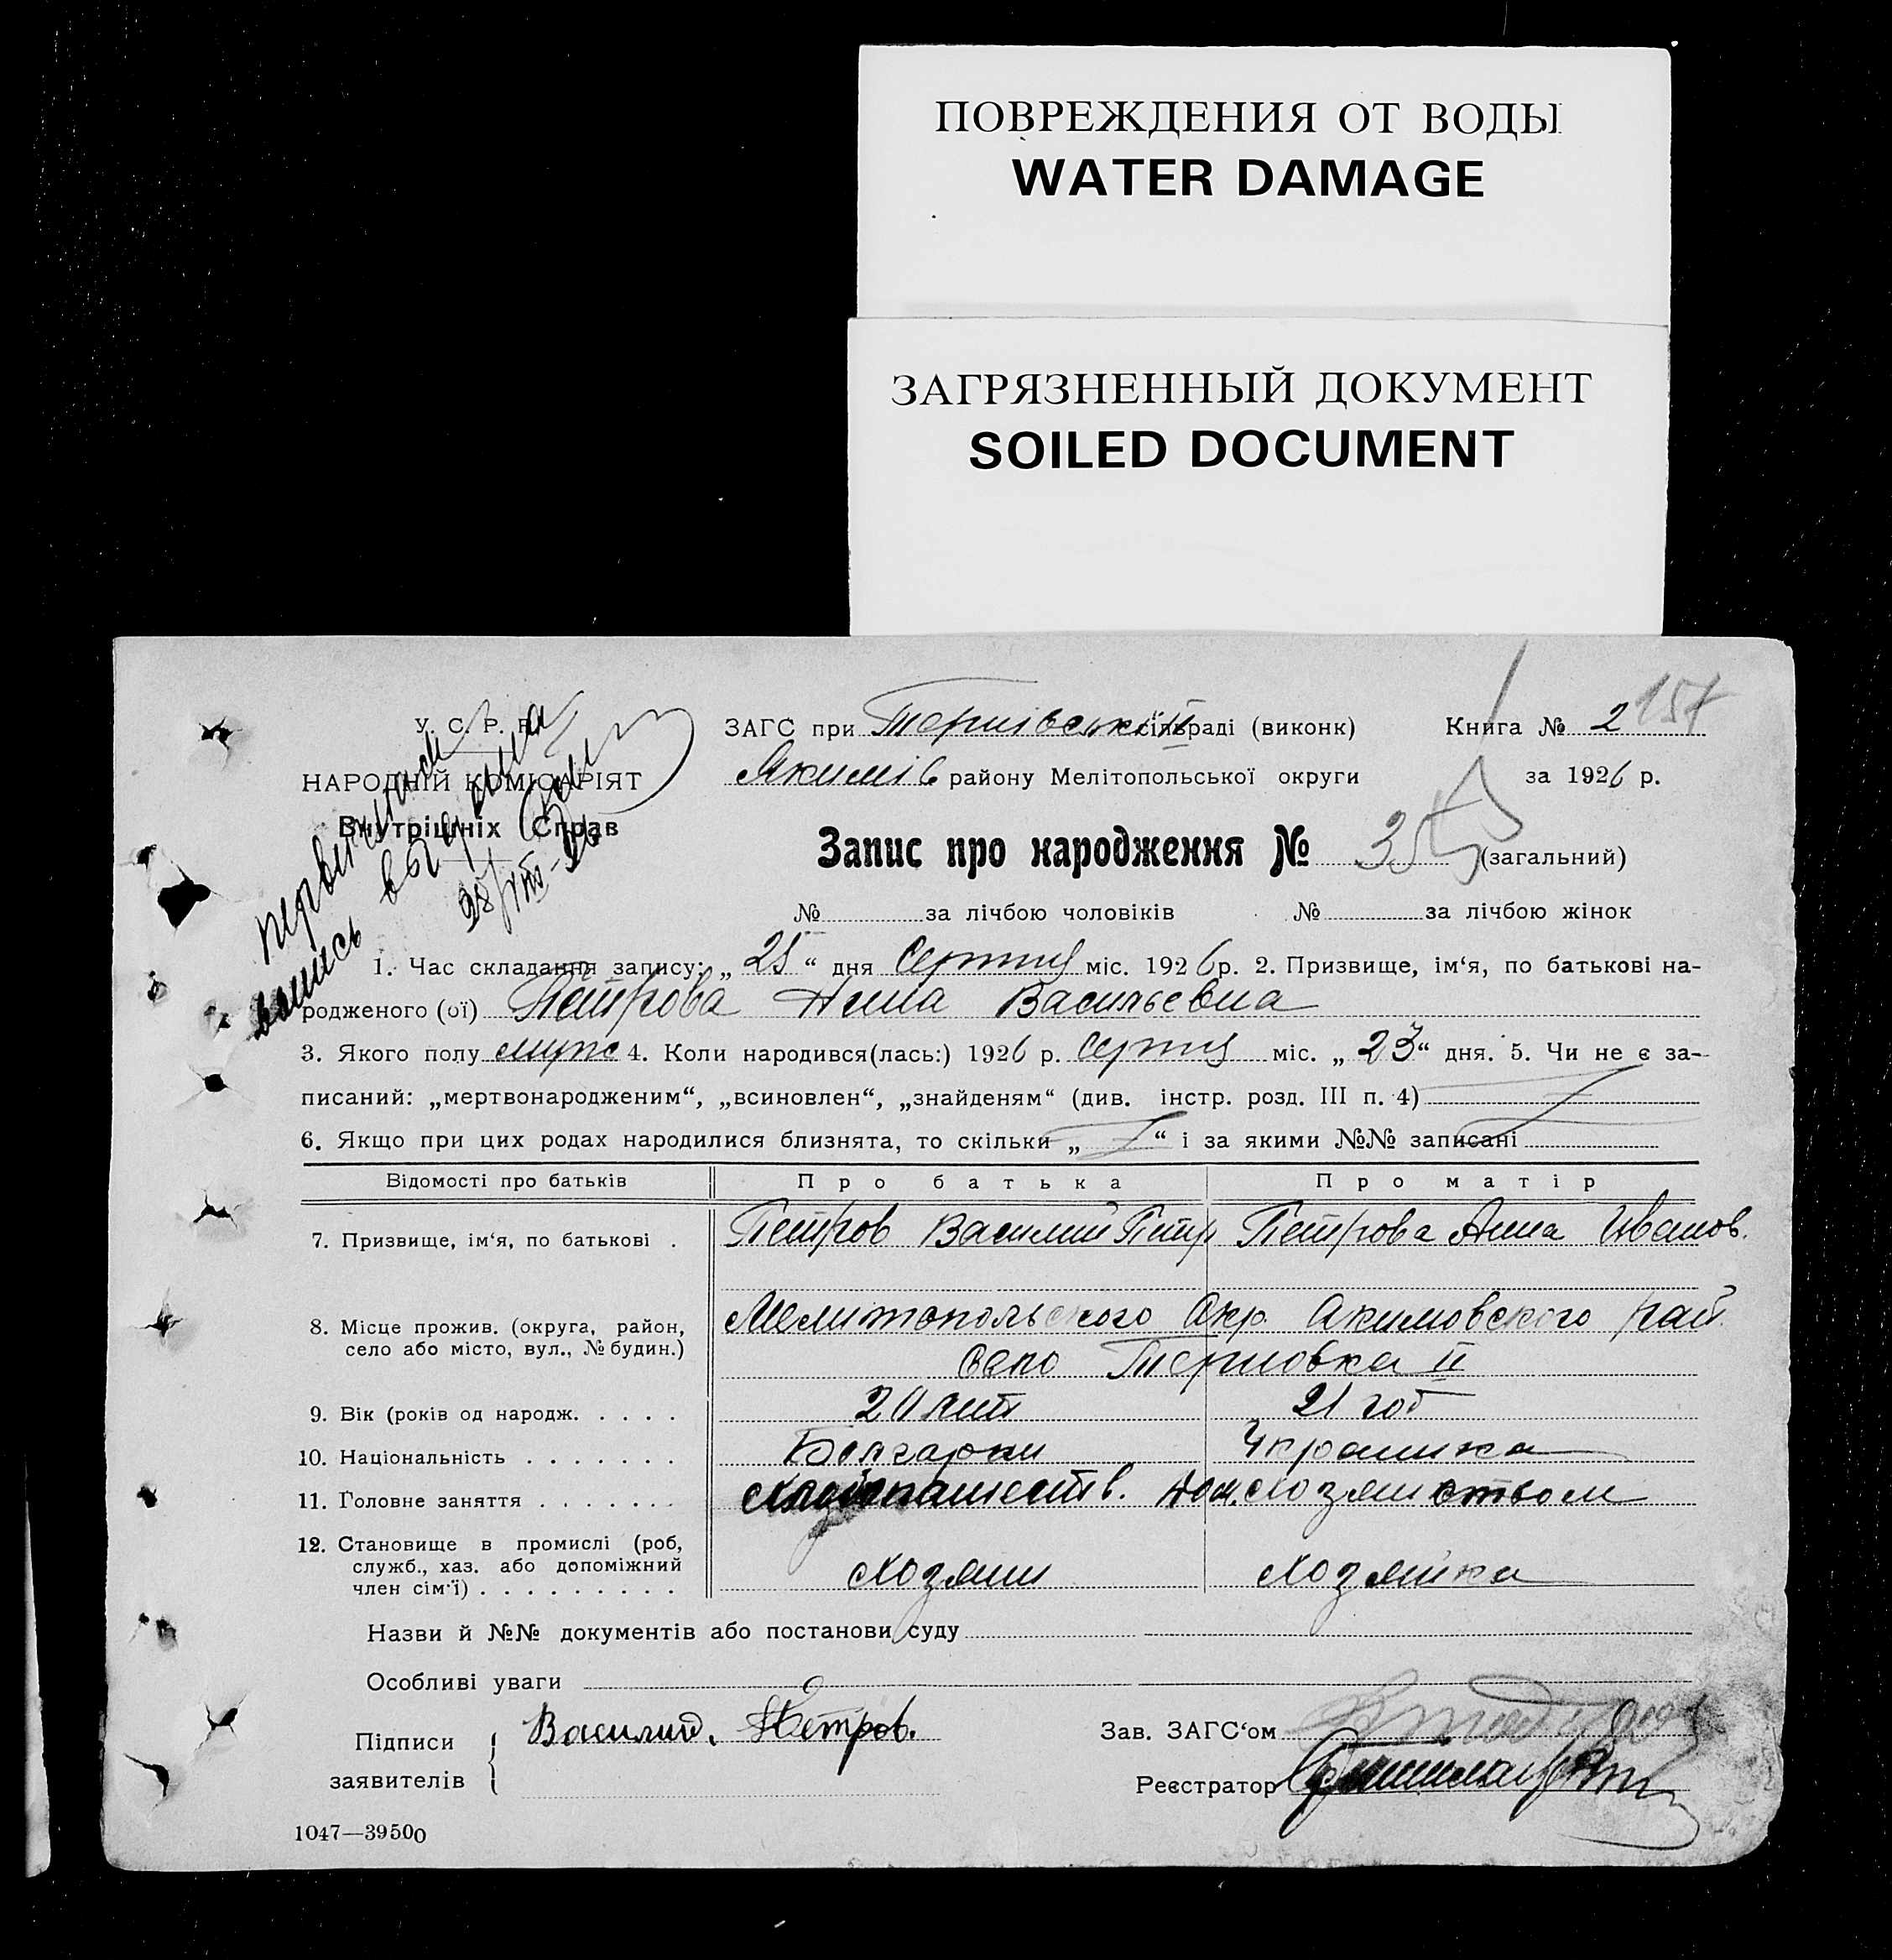 ПОВРЕЖДЕНИЯ ОТ ВОДЫ
WATER DAMAGE
ЗАГРЯЗНЕННЫЙ ДОКУМЕНТ
SOILED DOCUMENT
У. С. Р. Р.
НАРОДНІЙ КОМІСАРІЯТ
Внутрішніх Справ
28/VIII-26
ЗАГС при Тернівській II сільраді (виконк) Книга № 2 157
Якимів району Мелітопольської округи за 1926 р.
Запис про народження № 35 (загальний)
№ за лічбою чоловіків № за лічбою жінок
1. Час складання запису: „ 25 “ дня Серпня міс. 1926 р. 2. Призвище, ім‘я, по батькові на-
родженого (ої) Петрова Анна Васильевна
3. Якого полу 4. Коли народився(лась:) 1926 р. Серпня міс. „ 23 “ дня. 5. Чи не є за-
писаний: „мертвонародженим“, „всиновлен“, „знайденям“ (див. інстр. розд. III п. 4)
6. Якщо при цих родах народилися близнята, то скільки „ “ і за якими №№ записані
Відомості про батьків Про батька Про матір
7. Призвище, ім‘я, по батькові . Петров Василий Петр Петрова Анна Иванов.
8. Місце прожив. (округа, район, село або місто, вул., № будин.) Мелитопольского Окр. Акимовского рай.
Село Терновка II
9. Вік (років од народж. . . . . 20 лет 21 год
10. Національність . . . . . . . Болгарин Украинка
11. Головне заняття . . . . . . . Дом. хозяйством
12. Становище в промислі (роб, служб., хаз. або допоміжний член сім‘ї) . . . . . . . . . Хозяин Хозяйка
Назви й №№ документів або постанови суду
Особливі уваги
Підписи заявителів Василий Петров.
Зав. ЗАГС‘ом
Реєстратор
1047—39500